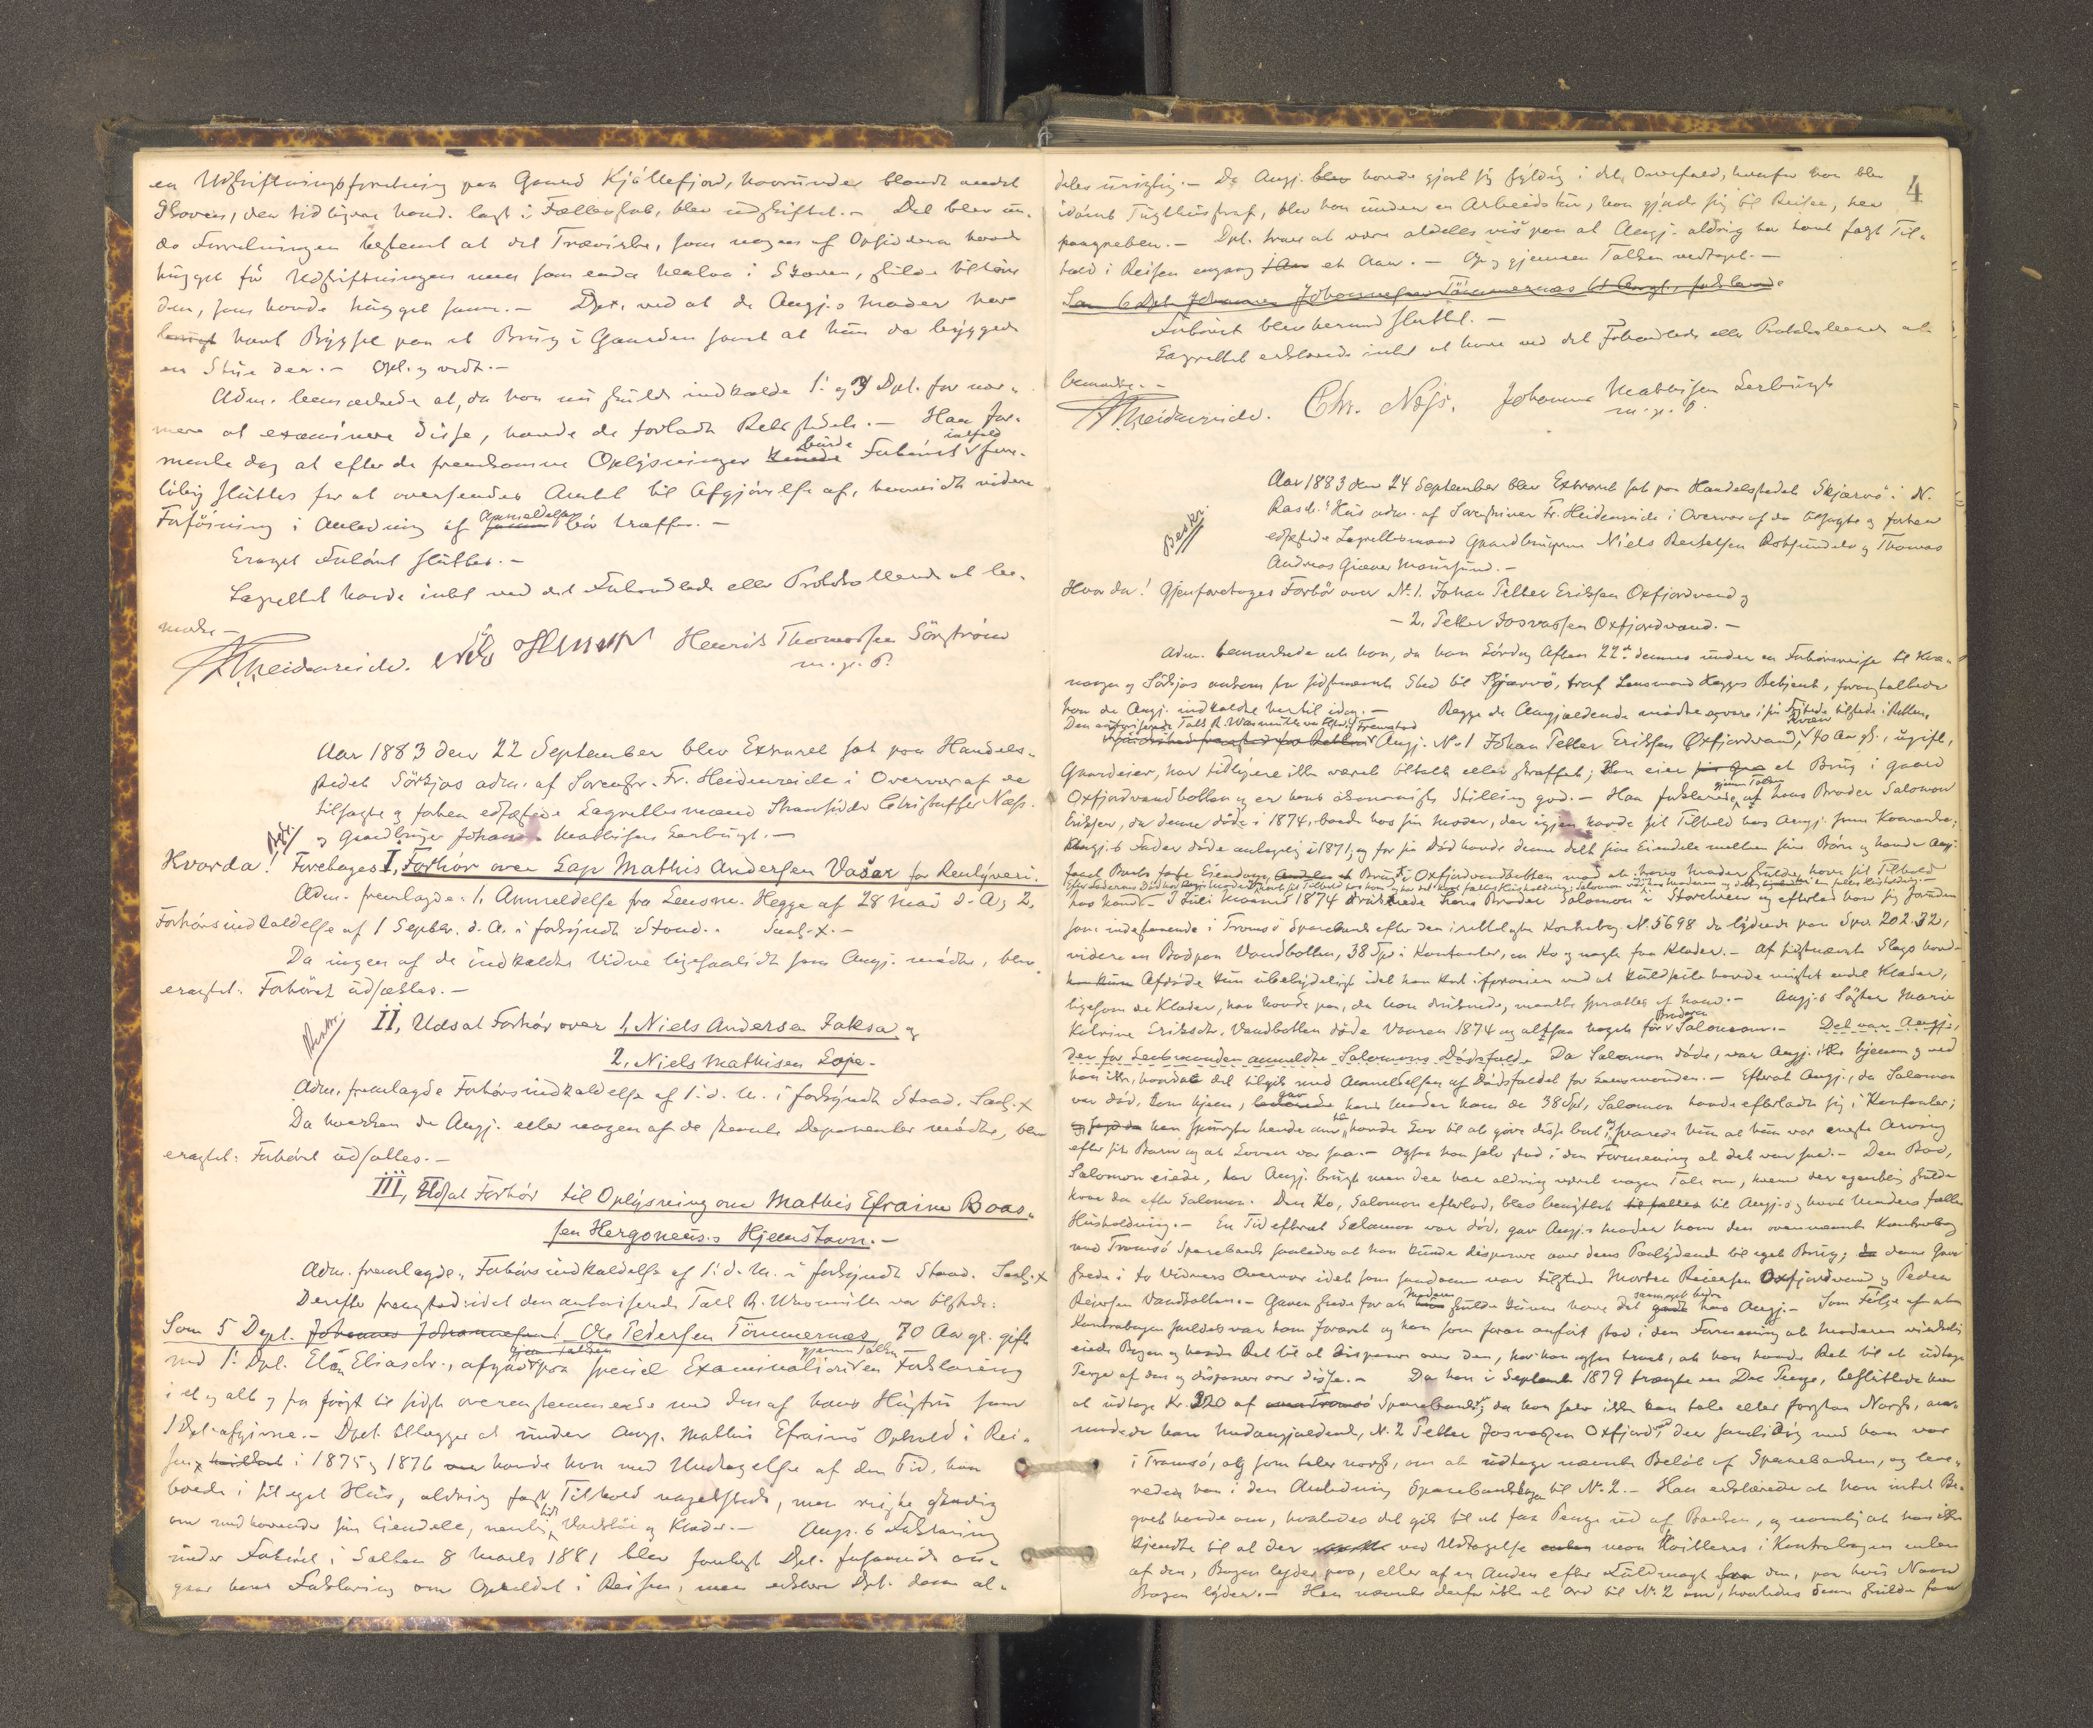 en Udskiftningsforretning paa Gaard Kjöllefjord, hvorunder blandt andet
Skoven, der tidligere havd. lagt i Fællesskab, blev udskiftet.- Det blev un-
da Forretningen bestemt at det Trævirke, som nogen af Opsidderne havde
hugget för Udskiftningen men som enda i Skoven, skulde tilhöre
den, som havde hugget samme.- Dpt. ved at de Angj.s Moder har
havt Bygsel paa et Brug i Gaarden samt at hun da byggede
en Stue der.- Opl. og vedt.-
Adm. bemærkede at, da han nu skulde indkalde 1' og 3 Dpt. for nær-
mere at examinere disse, havde de forladt Retsstedet.- Han for-
mente dog at efter de fremkomne Oplysninger burde Forhöret ialfald fore-
löbig sluttes for at oversendes Amtet til Afgjörelse af, hvorvidt videre
Forföining i Anledning af Anmeldelsen bör træffes.-
Eragtet Forhöret sluttes.-
Lagrettet havde intet ved det Forhandlede eller Protokollerede at be-
mærke-
Fr. Heidenreich. Nils Henrik Thomassen Sörström
m. p. P.
Aar 1883 den 22 September blev Extraret sat paa Handels-
stedet Sörkjos adm. af Sorenskr. Fr. Heidenreich i Overvær af de
tilsagte og forhen edfæstede Lagrettesmænd Strandsidder Christoffer Næss.
og Gaardbruger Johannes Mathisen Lerbugt.-
Hvorda! Foretoges I, Forhör over Lap Mathis Andersen Vasar for Rentyveri.
Adm. fremlagde: 1, Anmeldelse fra Lensm. Hegge af 28 Mai d. A. og 2,
Forhörsindkaldelse af 1 Septbr. d. A. i forkyndt Stand. Saal. x.-
Da ingen af de indkaldte Vidner ligesaalidt som Angj. mödte, blev
eragtet: Forhöret udsættes.-
II, Udsat Forhör over 1, Niels Andersen Jaksa og
2, Niels Mathisen Sope.-
Adm. fremlagde Forhörsindkaldelse af 1' d. M. i forkyndt Stand. Saal. x
Da hverken de Angj. eller nogen af de stevnte Deponenter mödte, blev
eragtet: Forhöret udsættes.-
III, Udsat Forhör til Oplysning om Mathis Efraim Boas-
sen Hergoneus.s Hjemstavn.-
Adm. fremlagde Forhörsindkaldelse af 1' d. M. i forkyndt Stand. Saal. x
Derefter fremstod idet den autoriserede Tolk R. Wasmuth var tilstede:
Som 5 Dept. Johannes Johannesen Ole Pedersen Tömmernæs 70 Aar gl. gift
med 1' Dpt. Elen Eliasdr., afgav gjennem Tolken paa speciel Examination gjennem Tolken en Forklaring
i et og alt og fra först til sidst overensstemmende med den af hans Hustru som
1 Dpt. afgivne.- Dpt. tillægger at under Angj. Mathis Efraims Ophold i Rei-
sen i 1875 og 1876 havde han med Undtagelse af den Tid, han
boede i sit eget Hus, aldrig fast Tilhold nogetsteds, men reiste stadig
om medhavende sin Eiendele, nemlig lidt Værktöi og Klæder.- Angj.s Forklaring
under Forhöret i Salten 8 Marts 1881 blev forelagt Dpt. forsaavidt an-
gaar hans Forklaring om Opholdet i Reisen, men erklærer Dpt. denne al-
4
deles urigtig.- Da Angj. havde gjort sig skyldig i det Overfald, hvorfor han blev
idömt Tugthusstraf, blev han under en Arbeidstur, han gjorde sig til Reisen, her
paagreben.- Dpt. tror at være aldeles vis paa at Angj. aldrig har havt fast Til-
hold i Reisen engang et Aar.- Op. og gjennem Tolken vedtaget.-
Som 6 Dpt. Johannes Johannesen Tömmernæs 61 Aar gl., forklarede
Forhöret blev herved sluttet.-
Lagrettet erklærede intet at have ved det Forhandlede eller Protokollerede at
bemærke.-
Fr. Heidenreich. Chr. Næss. Johannes Mathisen Lerbugt
m. p. P.
Aar 1883 den 24 September blev Extraret sat paa Handelsstedet Skjærvö i N.
Raschs Hus adm. af Sorenskriver Fr. Heidenreich i Overvær af de tilsagte og forhen
edfæstede Lagrettesmænd Gaardbrugerne Niels Bertelsen Rotsundelv og Thomas
Andreas Giæver Maursund.-
Beskr.
Hvorda! Gjenforetoges Forhör over No. 1. Johan Petter Eriksen Oxfjordvand og
- 2. Petter Josvassen Oxfjordvand.-
Adm. bemærkede at han, da han Lördag Aften 22de dennes under en Forhörsreise til Kvæ-
nangen og Sörkjos ankom fra sidstnævnte Sted til Skjærvö, traf Lensmand Hegges Betjent, foranstaltede
han de Angj. indkaldte hertil idag.- Begge de Angjældende mödte og vare i fri tilstede i Retten.
Den autoriserede Tolk R. Wasmuth var tilstede. Fremstod
Angj. No. 1 Johan Petter Eriksen Oxfjordvand, Kvæn 40 Aar gl., ugift,
Gaardeier, har tidligere ikke været tiltalt eller straffet; Han eier et Brug i Gaard
Oxfjordvandbotten og er hans ökonomiske Stilling god.- Han forklarede gjennem Tolken at hans Broder Salomon
Eriksen, da denne döde i 1874, boede hos sin Moder, der igjen havde sit Tilhold hos Angj. som Kaarenke;
Angj.s Fader döde antagelig i 1871, og för sin Död havde denne delt sine Eiendele mellem sine Börn og havde Angj.
faaet Parts faste Eiendom i Oxfjordvandbotten mod at hans Moder skulde have sit Tilhold
hos ham.- I Juli Maaned 1874 druknede hans Broder Salomon i Storelven og efterlod han sig foruden
som indestaaende i Tromsö Sparebank efter den irettelagte Kontrabog No. 5698 da lydende paa Spd. 202.32,
videre en Bod paa Vandbotten, 38 Spd. i Kontanter, en Ko og nogle faa Klæder.- Af sidstnævnte Slags havde
Afdöde kun ubetydeligt idet han kort iforveien ved et Kuldseile havde mistet endel Klæder,
ligesom de Klæder, han havde paa, da han druknede, maatte sprættes af ham.- Angj.s Söster Marie
Katrine Eriksdr. Vandbotten döde Vaaren 1874 og altsaa noget för Broderen Salomon.- Det var Angj.,
der for Lensmanden anmeldte Salomons Dödsfald. Da Salomon döde, var Angj. ikke hjemme og ved
han ikke, hvorledes det tilgik med Anmeldelsen af Dödsfaldet for Lensmanden.- Efterat Angj., da Salomon
var död, kom hjem, gav hans Moder ham de 38 Spd., Salomon havde efterladt sig i Kontanter;
han spurgte hende om hun havde Lov til at give disse bort, og svarede hun at hun var eneste Arving
efter sit Barn og at Loven var saa.- Ogsaa han selv stod i den Formening at det var saa.- Den Bod,
Salomon eiede, har Angj. brugt men der har aldrig været nogen Tale om, hvem der egentlig skulde
have den efter Salomon. Den Ko, Salomon efterlod, blev benyttet til Angj.s og hans Moders fælles
Husholdning.- En Tid efterat Salomon var död, gav Angj.s Moder ham den ovennævnte Kontrabog
med Tromsö Sparebank saaledes at han kunde disponere over dens Paalydende til eget Brug; denne Gave
skede i to Vidners Overvær idet som saadanne var tilstede Morten Reiersen Oxfjordvand og Peder
Reiersen Vandbotten.- Gaven skede for at Moderen skulde kunne have det saameget bedre hos Angj.- Som Fölge af at
Kontrabogen saaledes var ham foræret og han som foran anfört stod i den Formening at Moderen virkelig
eiede Bogen og havde Ret til at disponere over den, har han ogsaa troet, at han havde Ret til at udtage
Penge af den og disponere over disse.- Da han i September 1879 trængte en Del Penge, besluttede han
at udtage Kr. 320 af Sparebanken; da han selv ikke kan tale eller forstaa Norsk, an-
modede han Medangjældende, No. 2 Petter Josvassen Oxfjordvand, der samtidig med ham var
i Tromsö, og som taler norsk, om at udtage nævnte Belöb af Sparebanken, og leve-
rede han i den Anledning Sparebankbogen til No. 2.- Han erklærede at han intet Be-
greb havde om, hvorledes det gik til at faa Penge ud af Banken, og navnlig at han ikke
kjendte til at der ved Udtagelse maa kvitteres i Kontrabogen enten
af den, Bogen lyder paa, eller af en Anden efter Fuldmagt fra den, paa hvis Navn
Bogen lyder.- Han nævnte derfor ikke et Ord til No. 2 om, hvorledes denne skulde faa